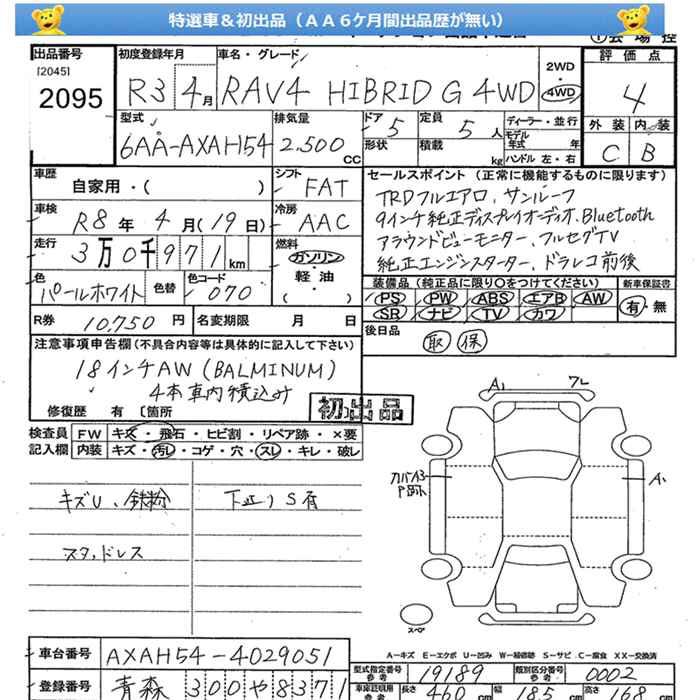 特選車＆初出品（ＡＡ６ケ月間出品歴が無い）
会場控
出品番号
[2045]
2095
初度登録年月
R3 4月
車名・グレード
RAV4 HIBRID G 4WD
2WD
・
4WD
評価点
4
外装 内装
C B
型式
6AA-AXAH54
排気量
2.500 CC
ドア 5
定員 5 人
形状
積載 kg
ディーラー・並行
モデル
年式 年
ハンドル 左・右
車歴
自家用・( )
シフト
FAT
車検
R8年 4月(19日)
冷房
AAC
走行
3万0千971 km
燃料
ガソリン
軽・油
( )
色
パールホワイト
色替
色コード
070
R券 10.750 円
名変期限 月 日
セールスポイント（正常に機能するものに限ります）
TRDフルエアロ、サンルーフ
9インチ純正ディスプレイオーディオ、Bluetooth
アラウンドビューモニター、フルセグTV
純正エンジンスターター、ドラレコ前後
装備品（純正品に限り〇をつけてください）
新車保証書
PS PW ABS エアB AW
SR ナビ TV カワ
有・無
後日品
取 保
注意事項申告欄(不具合内容等は具体的に記入して下さい)
18インチAW(BALMINUM)
4本車内積込み
修復歴 有 〔箇所
初出品
検査員
記入欄
FW キズ・飛石・ヒビ割・リペア跡・×要
内装 キズ・汚レ・コゲ・穴・スレ・キレ・破レ
キズU、鉄粉 下廻りS有
スタッドレス
A1
フレ
カバーA3
P凹み
A1
スペア
A＝キズ E＝エクボ U＝凹み W＝補修跡 S＝サビ C＝腐食 XX＝交換済
車台番号 AXAH54-4029051
登録番号 青森 300や8371
型式指定番号
参考
19189
類別区分番号
参考
0002
車庫証明用
参考
長さ 460 cm 幅 185 cm 高さ 168 cm